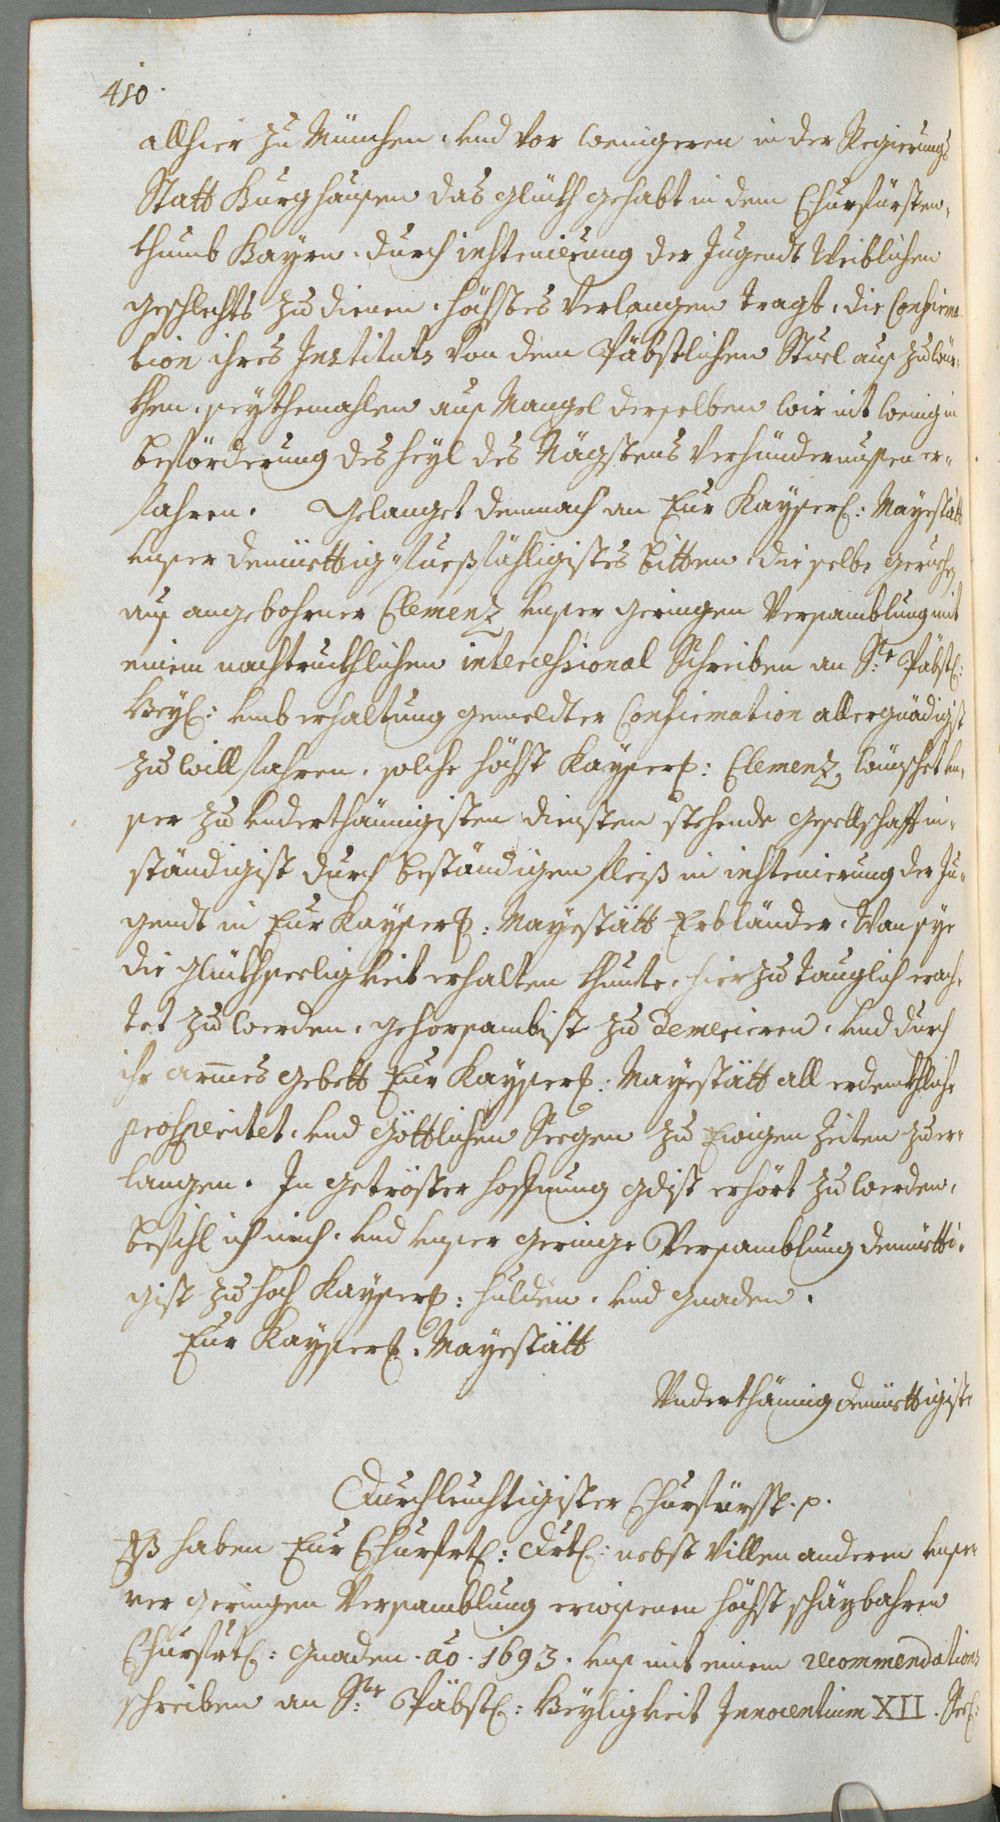 410.
allhier zu München. und vor wenigeren in der Regierungs
Statt Burghausen das glückh gehabt in dem Churfürsten-
thumb Bayrn. durch instruierung der Jugendt Weiblichen
geschlechts zu dienen. höchstes verlangen tragt. die Confirma-
tion ihres Instituts von dem Päbstlichen Stuel auß zu wür-
khen. seythemahlen auß Mangel derselben wir nit wenig in
beförderung des heyl des Nägstens verhündernussen er-
fahren. Gelanget demnach an Eur Kayserl: Mayestätt
unser demüettig fuesfähligistes bitten. die selbe geruche
auß angebohrner Clemenz unser geringen Versamblung mit
einem nachtruckhlichen intercessional Schreiben an Sr. Päbstl:
Heyl: umb erhaltung gemeldter Confirmation allergnädigist
zu willfahren. solche höchst Kayserl: Clemenz, wünschet un-
ser zu underthännigisten diensten stehende gesellschafft in-
ständigist durch beständigen fleiß in instruierung der Ju-
gendt in Eur Kayserl: Mayestätt Erbländer. Wan sye
die glückhseeligkeit erhalten khunte. hierzu tauglich erach-
tet zu werden. gehorsambist zu demerieren. und durch
ihr armes gebett Eur Kayserl: Mayestätt all erdenkhliche
prosperitet. und Göttlichen Seegen zu Ewigen Zeiten zu er-
langen. In getröster hoffnung gdist erhört zu werden.
befihl ich mich. und unser geringe Versamblung demüetti-
gist zu hoch Kayserl: hulden. und gnaden.
Eur Kayserl: Mayestätt
Underthännig demüettigiste
Durchleuchtigister Churfürst. p.
Eß haben Eur Churfrtl: Drtl: nebst villen anderen unse-
rer geringen Versamblung erwisenen höchst schäzbahren
Churfrtl: gnaden. ao. 1693. uns mit einem recommendations
schreiben an Sr. Päbstl: Heyligkeit Innocentium XII. Seel: